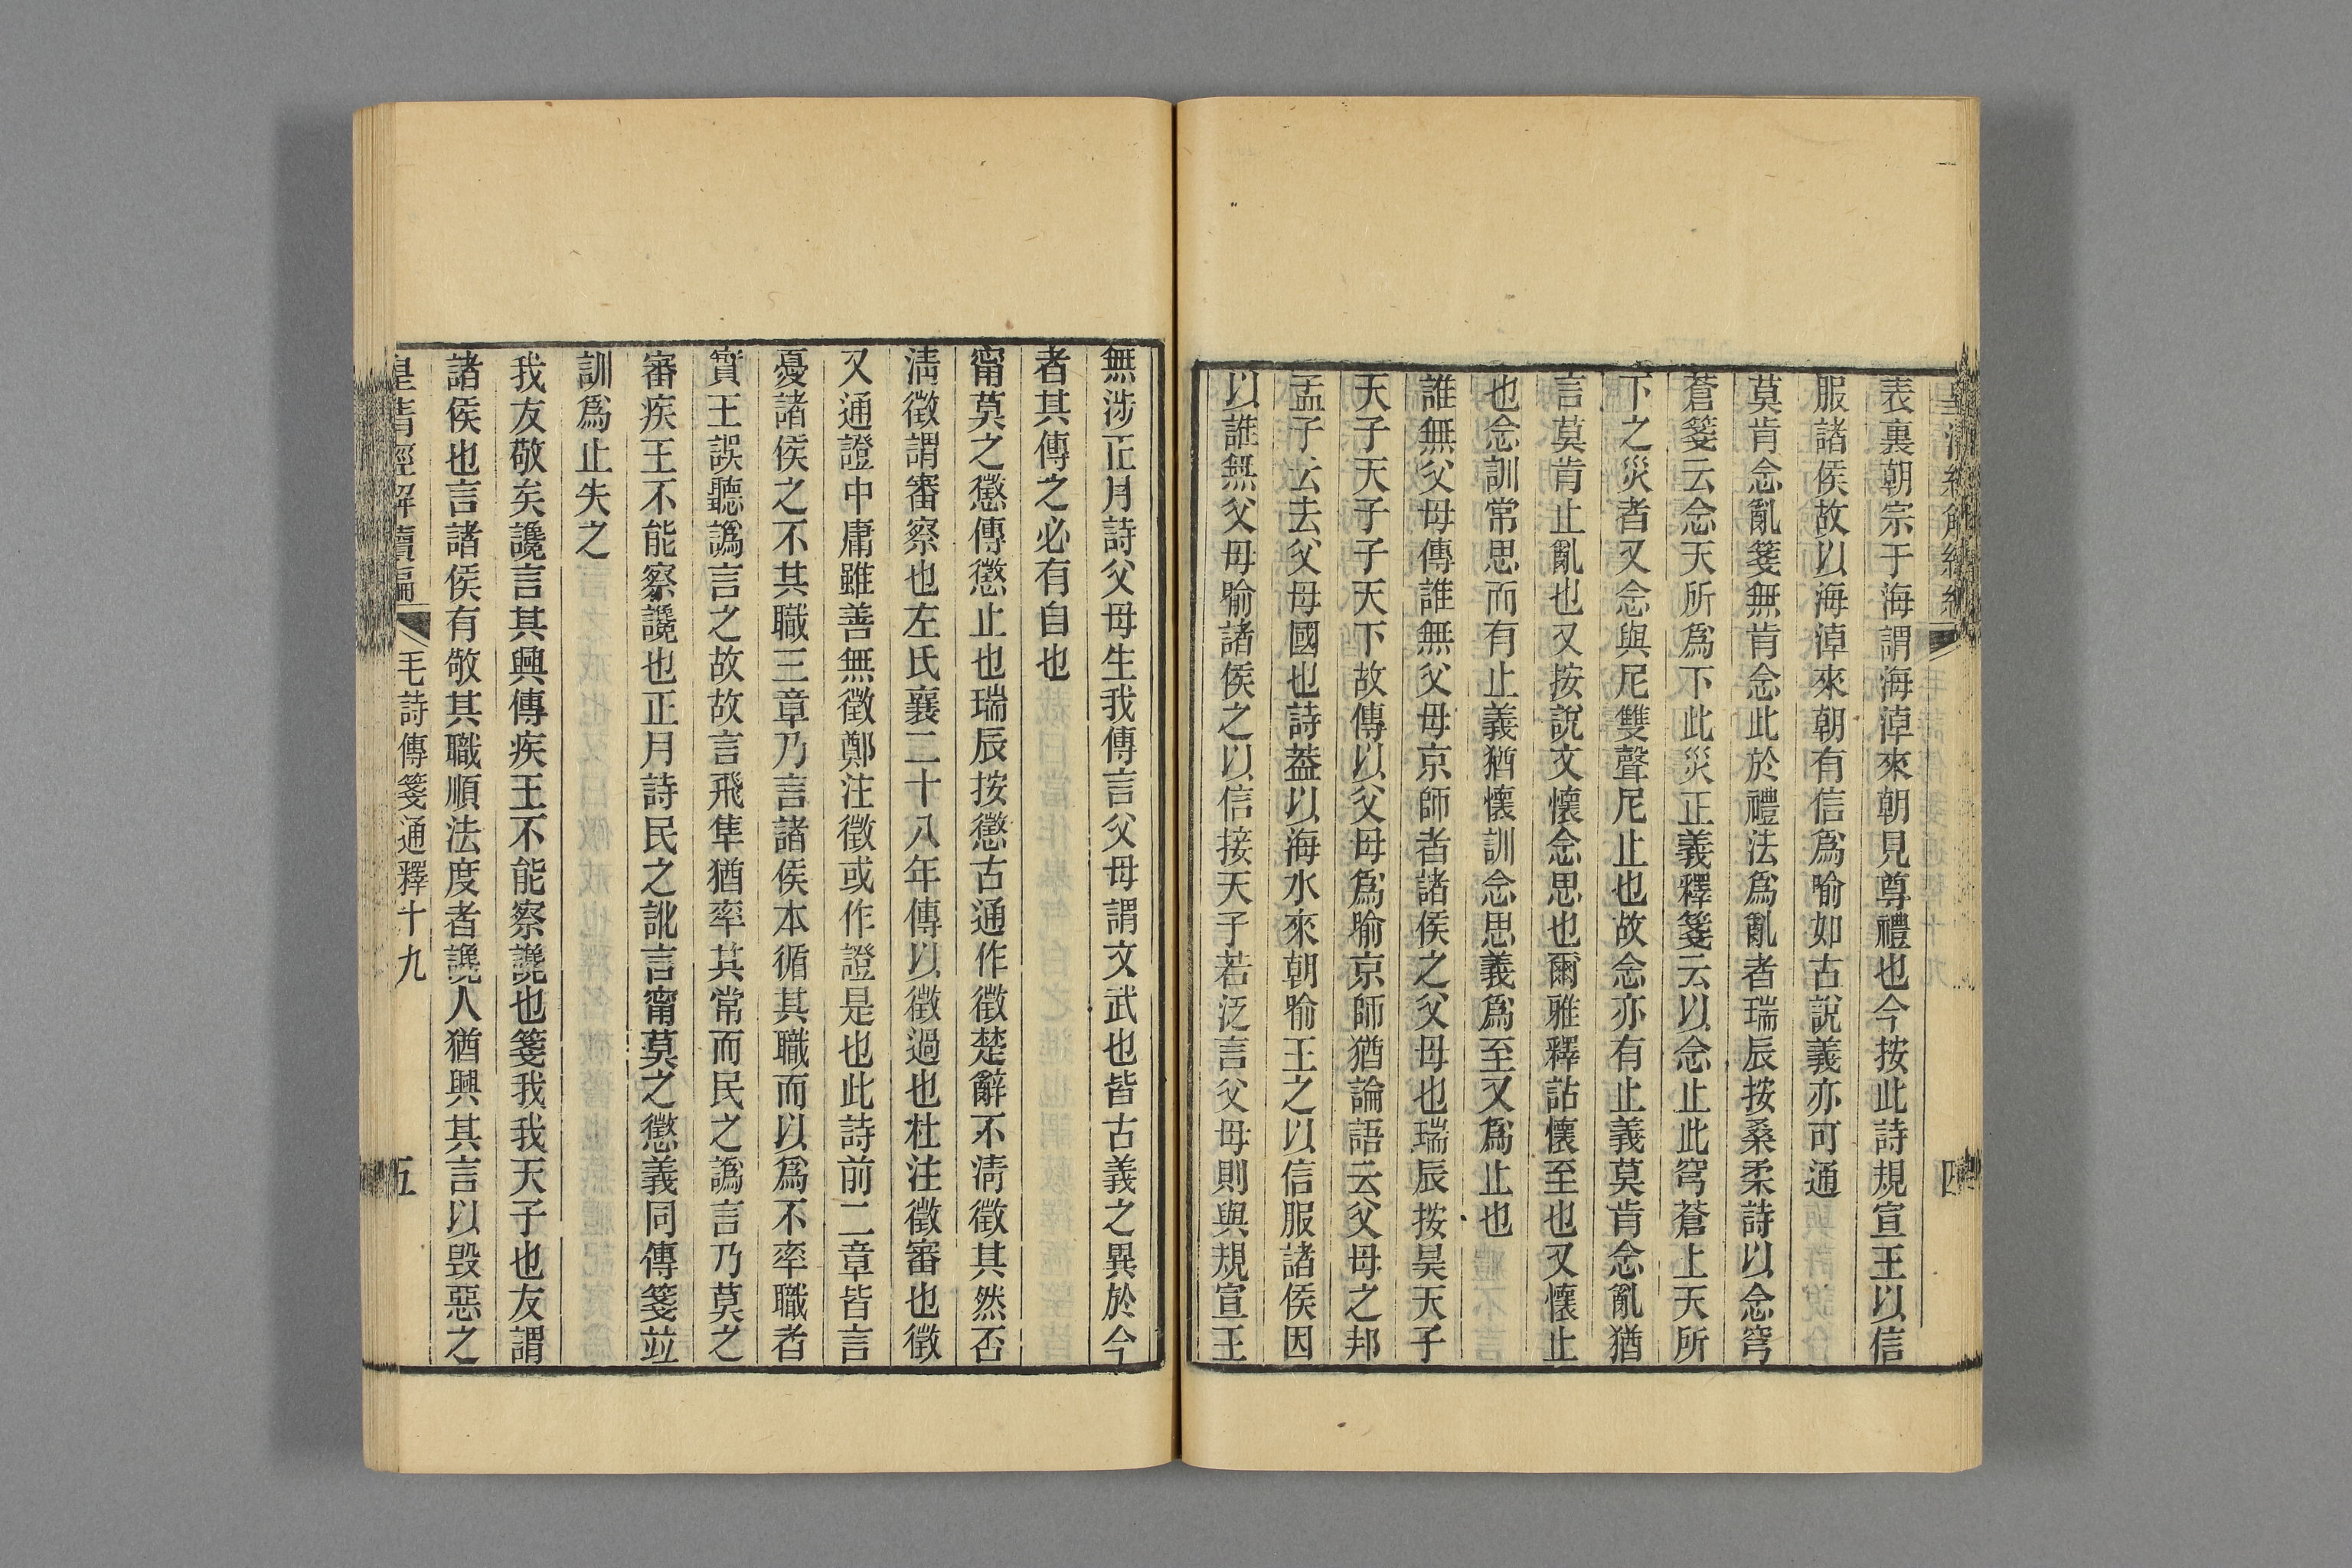 表裏朝宗于海謂海淖來朝見尊禮也今按此詩規宣王以信
服諸侯故以海淖來朝有信爲喻如古說義亦可通
莫肯念亂箋無肯念此於禮法爲亂者瑞辰按桑柔詩以念穹
蒼箋云念天所爲下此災正義釋箋云以念止此穹蒼上天所
下之災者又念與尼雙聲尼止也故念亦有止義莫肯念亂猶
言莫肯止亂也又按說文懷念思也爾雅釋詁懷至也又懷止
也念訓常思而有止義猶懷訓念思義爲至又爲止也
誰無父母傳誰無父母京師者諸侯之父母也瑞辰按昊天子
天子天子子天下故傳以父母爲喻京師猶論語云父母之邦
孟子云去父母國也詩葢以海水來朝喻王之以信服諸侯因
以誰無父母喻諸侯之以信接天子若泛言父母則與規宣王
四
無涉正月詩父母生我傳言父母謂文武也皆古義之異於今
者其傳之必有自也
甯莫之懲傳懲止也瑞辰按懲古通作徵楚辭不淸徵其然否
淸徵謂審察也左氏襄二十八年傳以徵過也杜注徵審也徵
又通證中庸雖善無徵鄭注徵或作證是也此詩前二章皆言
憂諸侯之不其職三章乃言諸侯本循其職而以爲不率職者
實王誤聽譌言之故故言飛隼猶率其常而民之譌言乃莫之
審疾王不能察讒也正月詩民之訛言甯莫之懲義同傳箋竝
訓爲止失之
我友敬矣讒言其興傳疾王不能察讒也箋我我天子也友謂
諸侯也言諸侯有敬其職順法度者讒人猶興其言以毀惡之
皇清經解續編 毛詩傳箋通釋十九 五